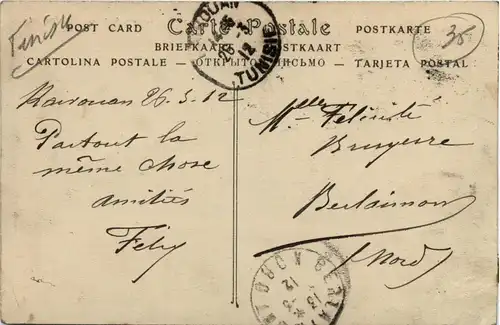 Tunisie
35
POST CARD Carte Postale POSTKARTE
BRIEFKAART
CARTOLINA POSTALE — ОТКРЫТОЕ ПИСЬМО — TARJETA POSTAL
TUNISIE
12
Kairouan 26.3.12
Partout la
même chose
Amitiés
Fély
Melle Félicité
Bruyerre
Berlaimont
(Nord)
NORD
12